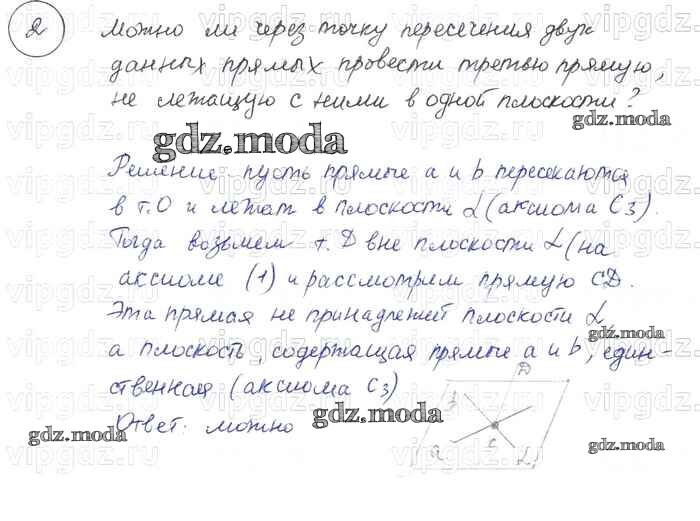 2 Можно ли через точку пересечения двух
данных прямых провести третью прямую,
не лежащую с ними в одной плоскости?
gdz.moda
gdz.moda
Решение: пусть прямые a и b пересекаются
в т.О и лежат в плоскости α (аксиома С3).
Тогда возьмем т. D вне плоскости α (на
аксиоме (1) и рассмотрим прямую CD.
Эта прямая не принадлежит плоскости α,
gdz.moda
а плоскость, содержащая прямые a и b, един-
ственная (аксиома С3)
D
b
Ответ: можно
gdz.moda
gdz.moda
gdz.moda
a
c
α
vipgdz.ru